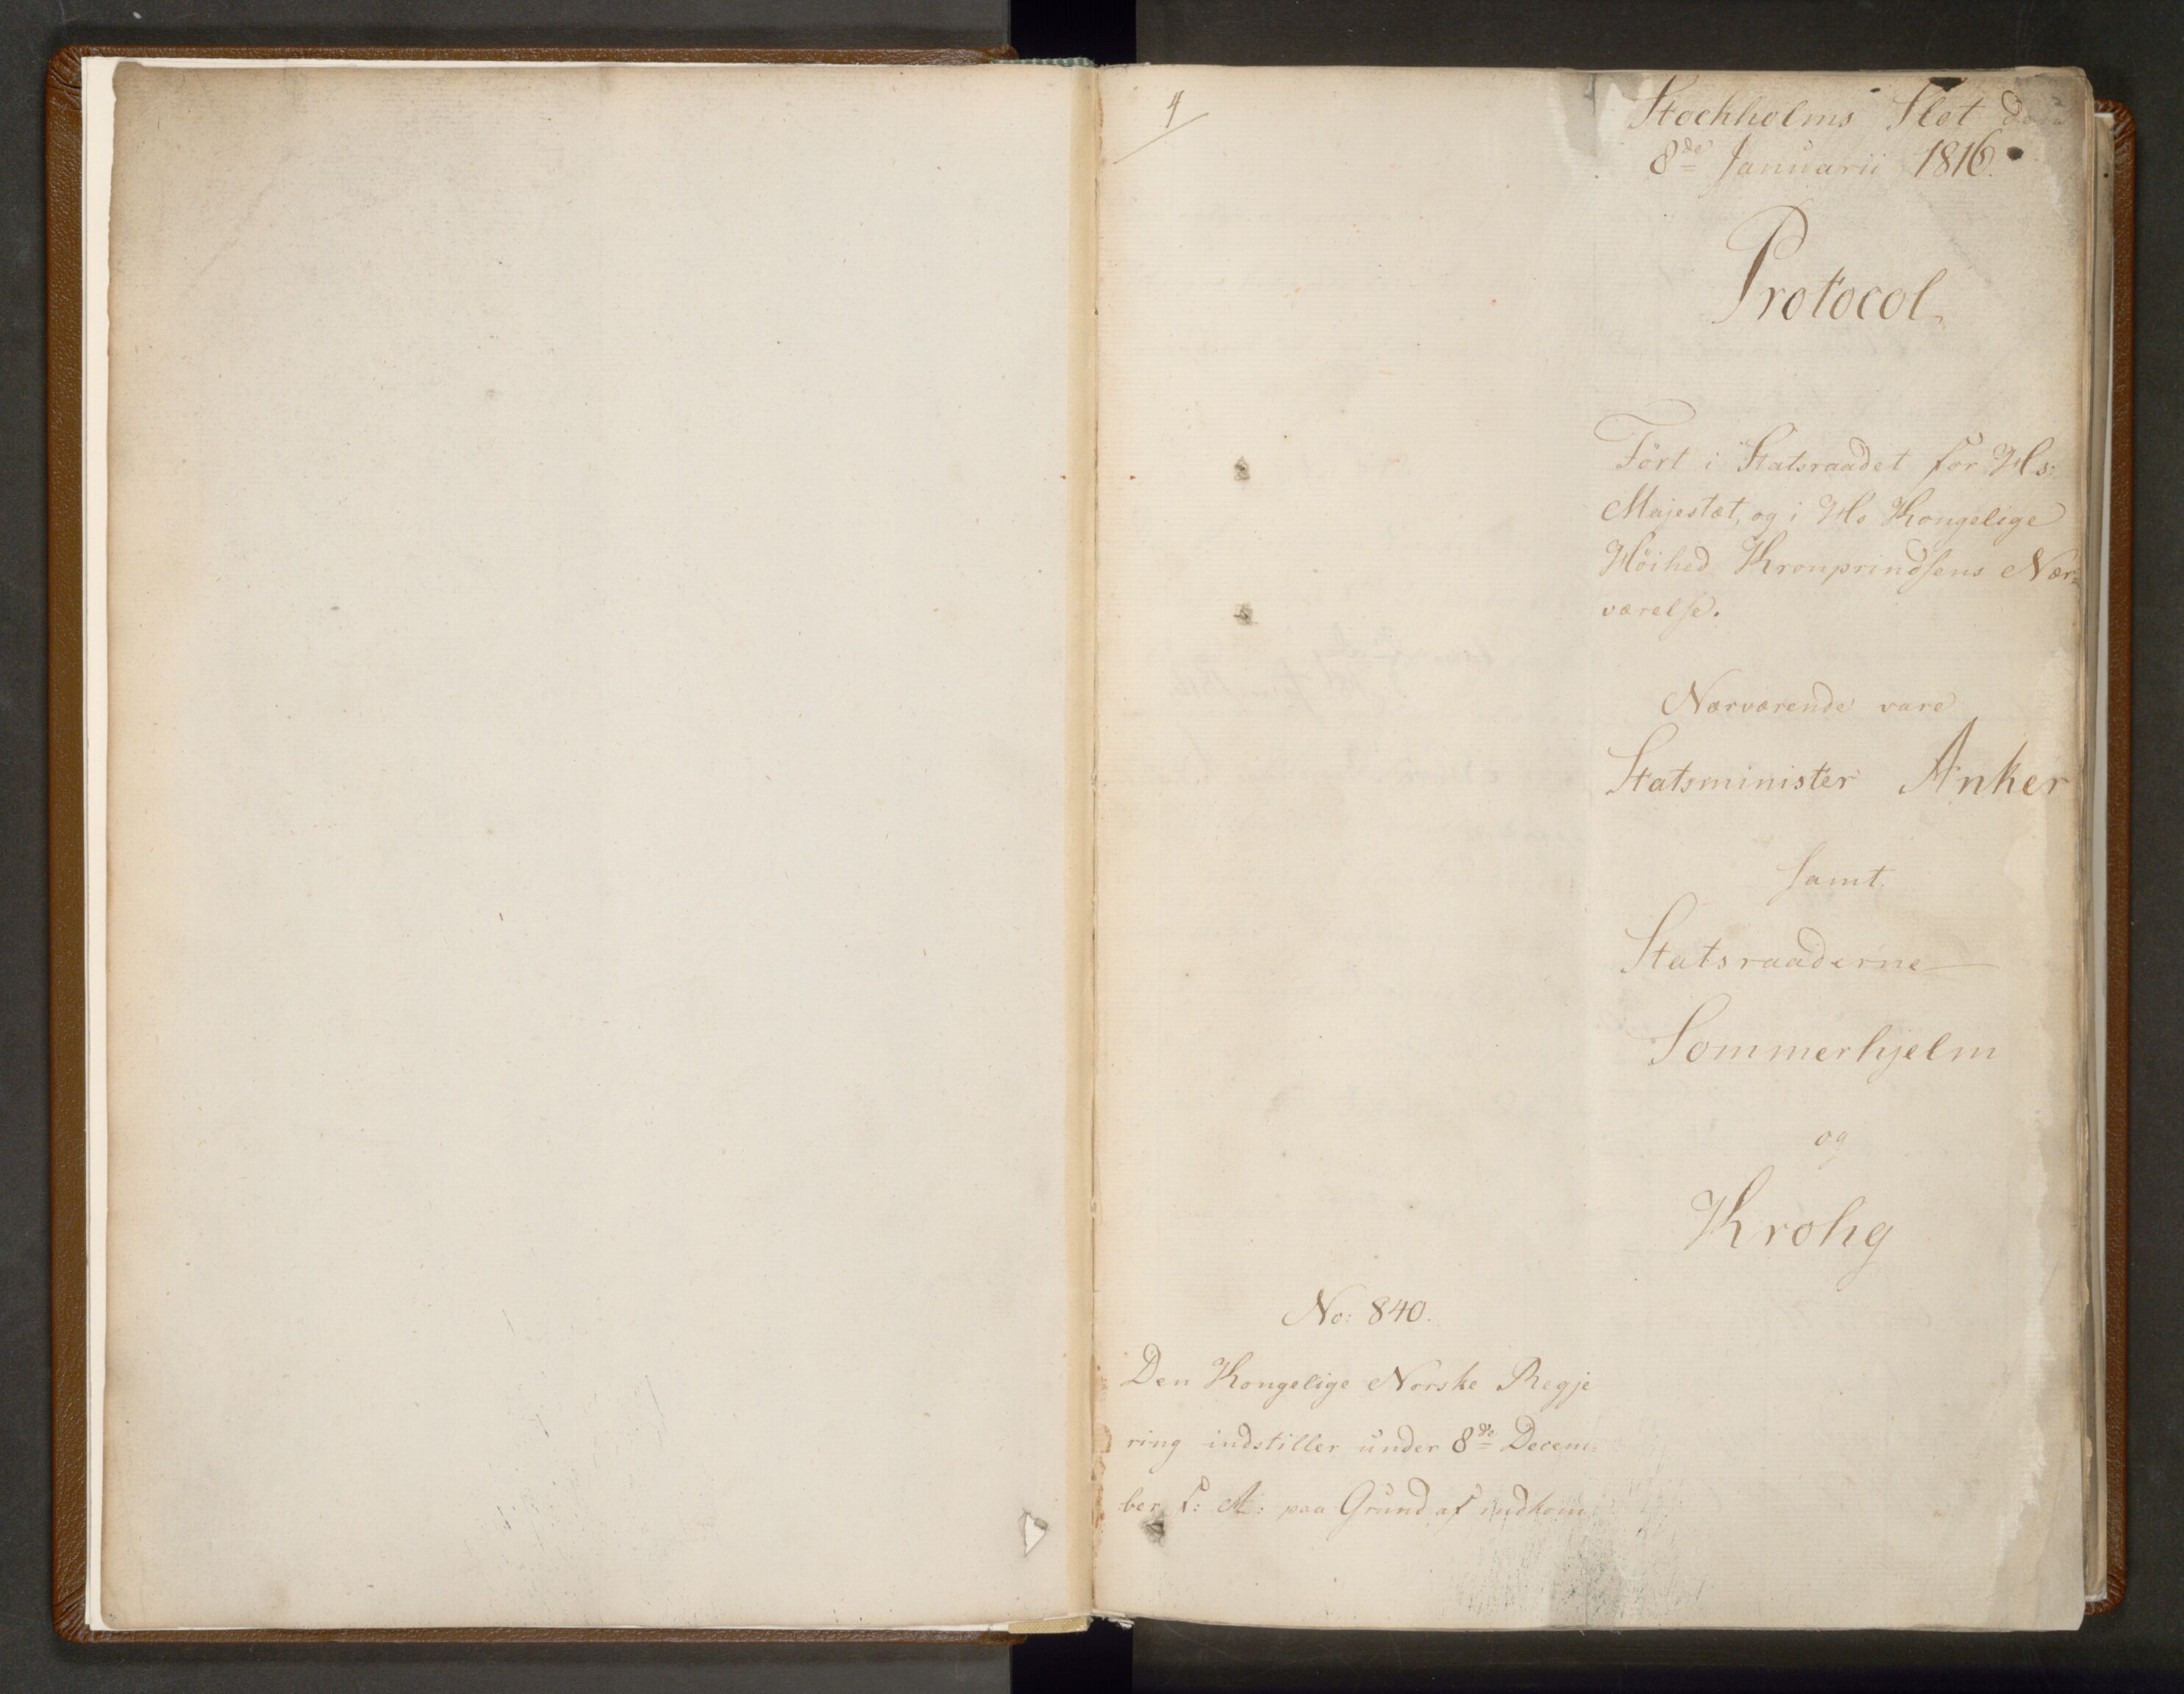 4
Stockholms Slot den
8de Januarii 1816.
Protocol
Ført i Statsraadet for Hs:
Majestæt, og i Hs Kongelige
Höihed Kronprindsens Nær-
værelse.
Nærværende vare
Statsminister Anker
samt
Statsraaderne
Sommerhjelm
og
Krohg
No: 840.
Den Kongelige Norske Regje
ring indstiller under 8de Decem-
ber f: A: paa Grund af indkom